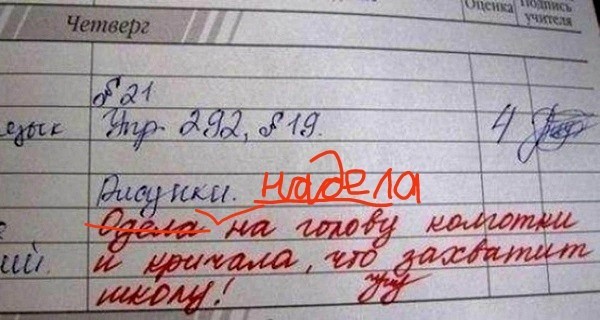 Оценка Подпись учителя
Четверг
№21
язык Упр. 292, №19. 4
Рисунки. надела
Одела на голову колготки
ий. и кричала, что захватит
школу!